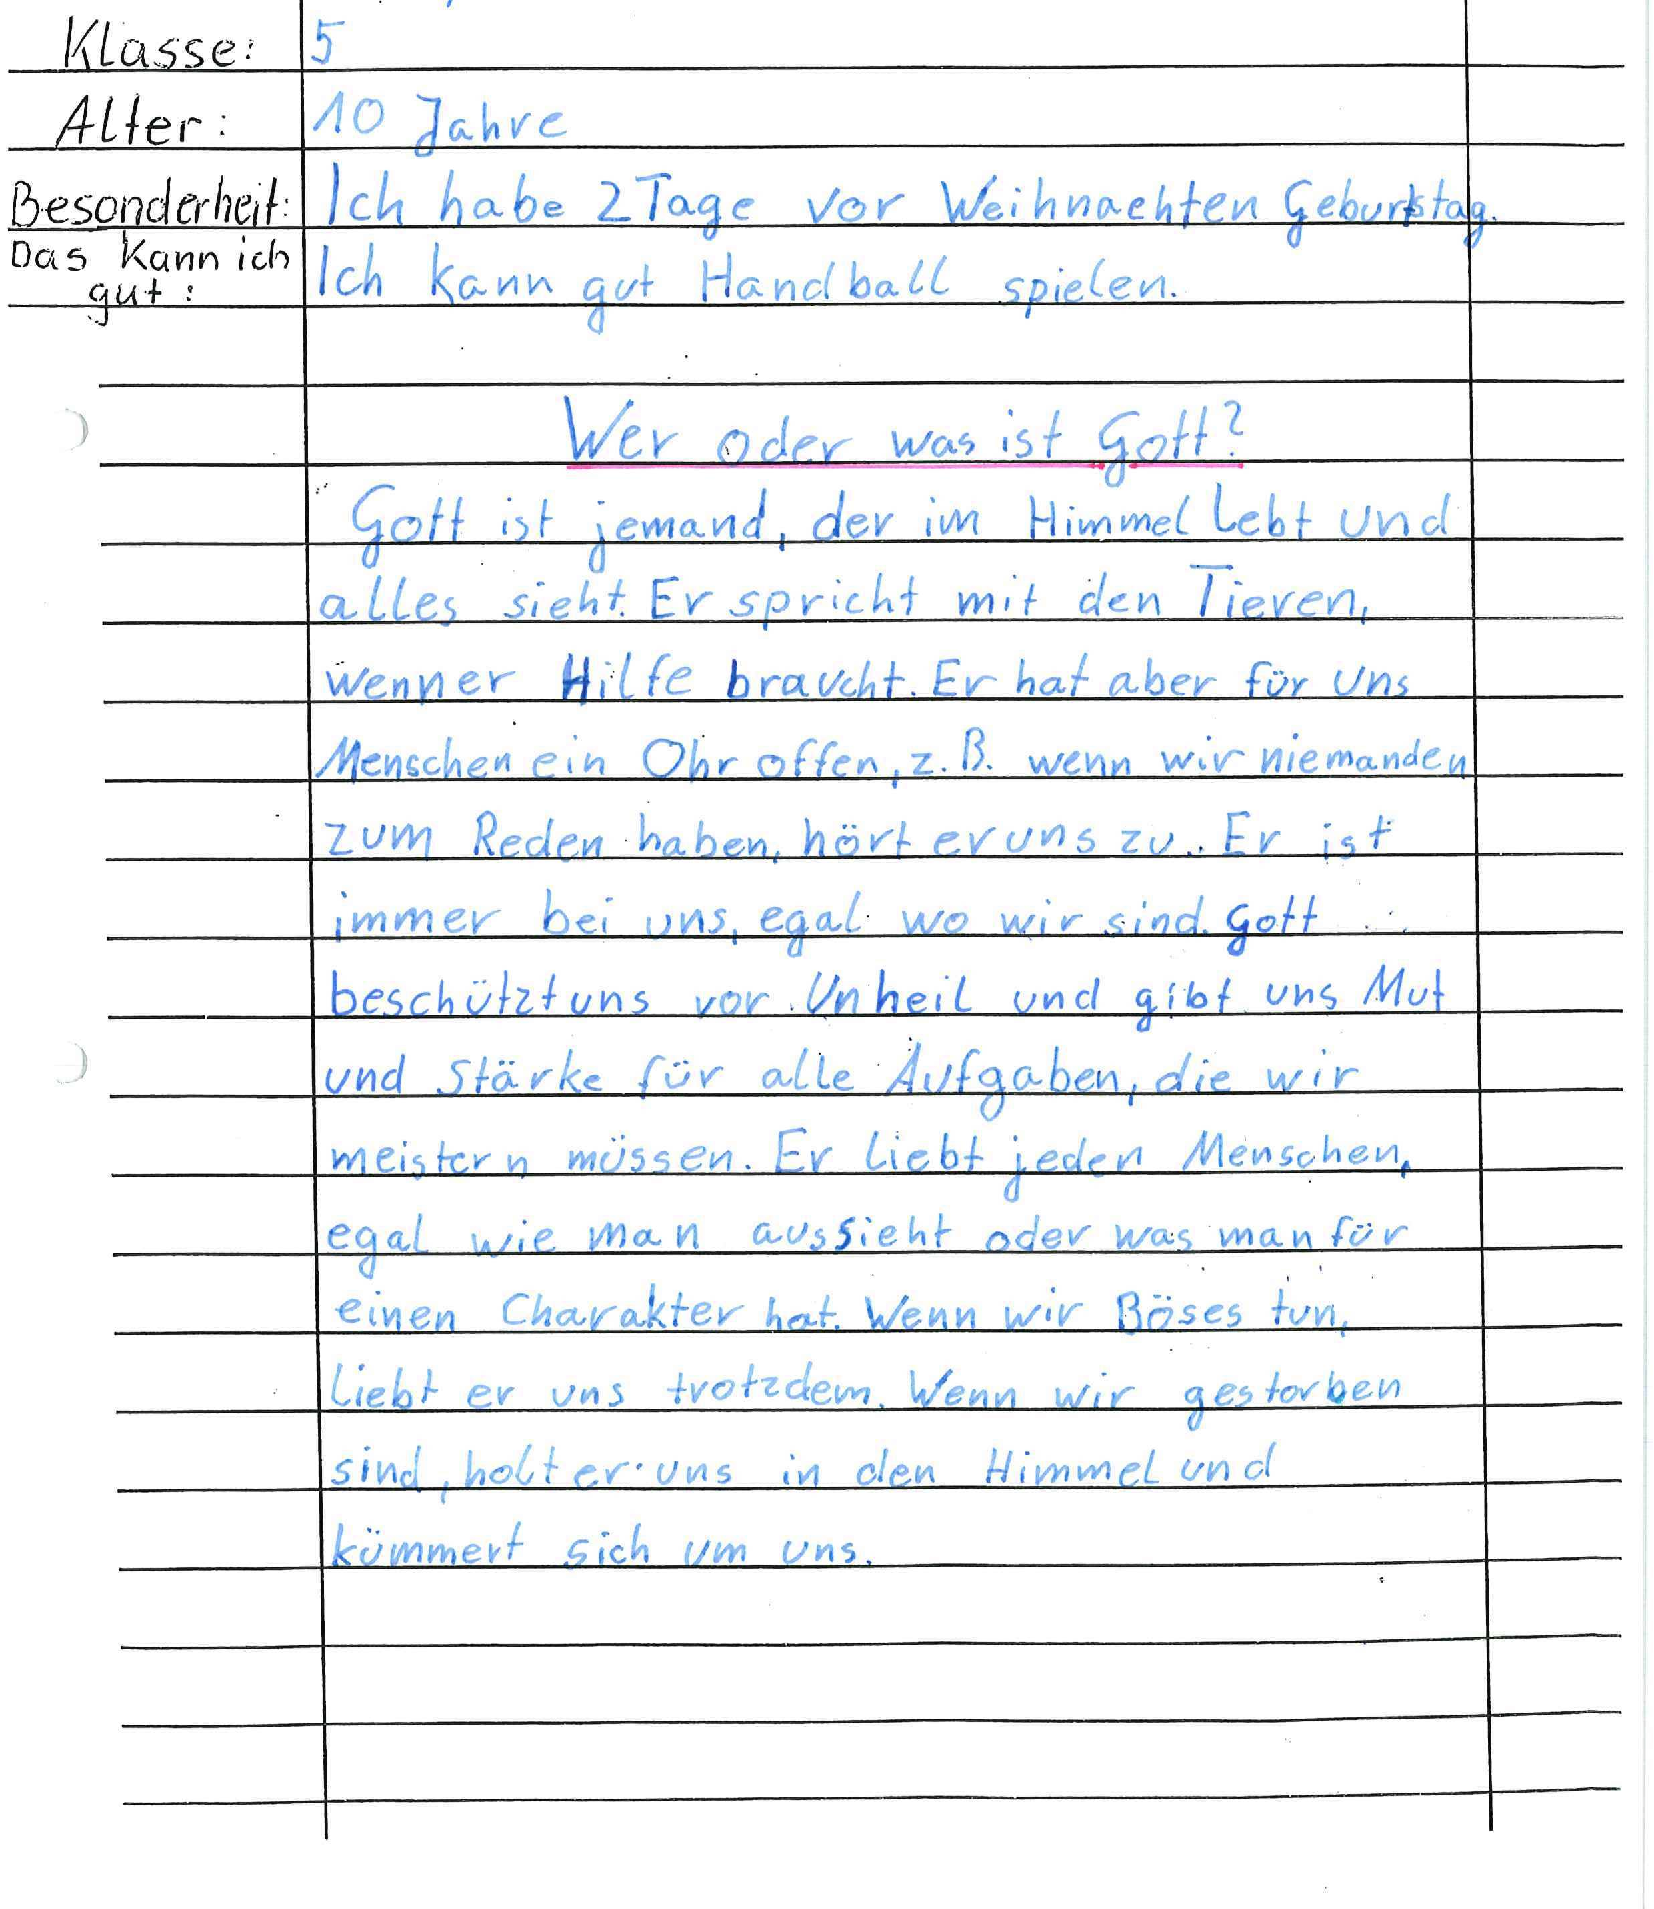 Klasse: 5
Alter: 10 Jahre
Besonderheit: Ich habe 2 Tage vor Weihnachten Geburtstag.
Das kann ich
gut: Ich kann gut Handball spielen.
Wer oder was ist Gott?
Gott ist jemand, der im Himmel lebt und
alles sieht. Er spricht mit den Tieren,
wenner Hilfe braucht. Er hat aber für uns
Menschen ein Ohr offen, z.B. wenn wir niemanden
zum Reden haben, hört er uns zu. Er ist
immer bei uns, egal wo wir sind. Gott
beschützt uns vor Unheil und gibt uns Mut
und Stärke für alle Aufgaben, die wir
meistern müssen. Er liebt jeden Menschen,
egal wie man aussieht oder was man für
einen Charakter hat. Wenn wir Böses tun,
liebt er uns trotzdem. Wenn wir gestorben
sind, holt er uns in den Himmel und
kümmert sich um uns.